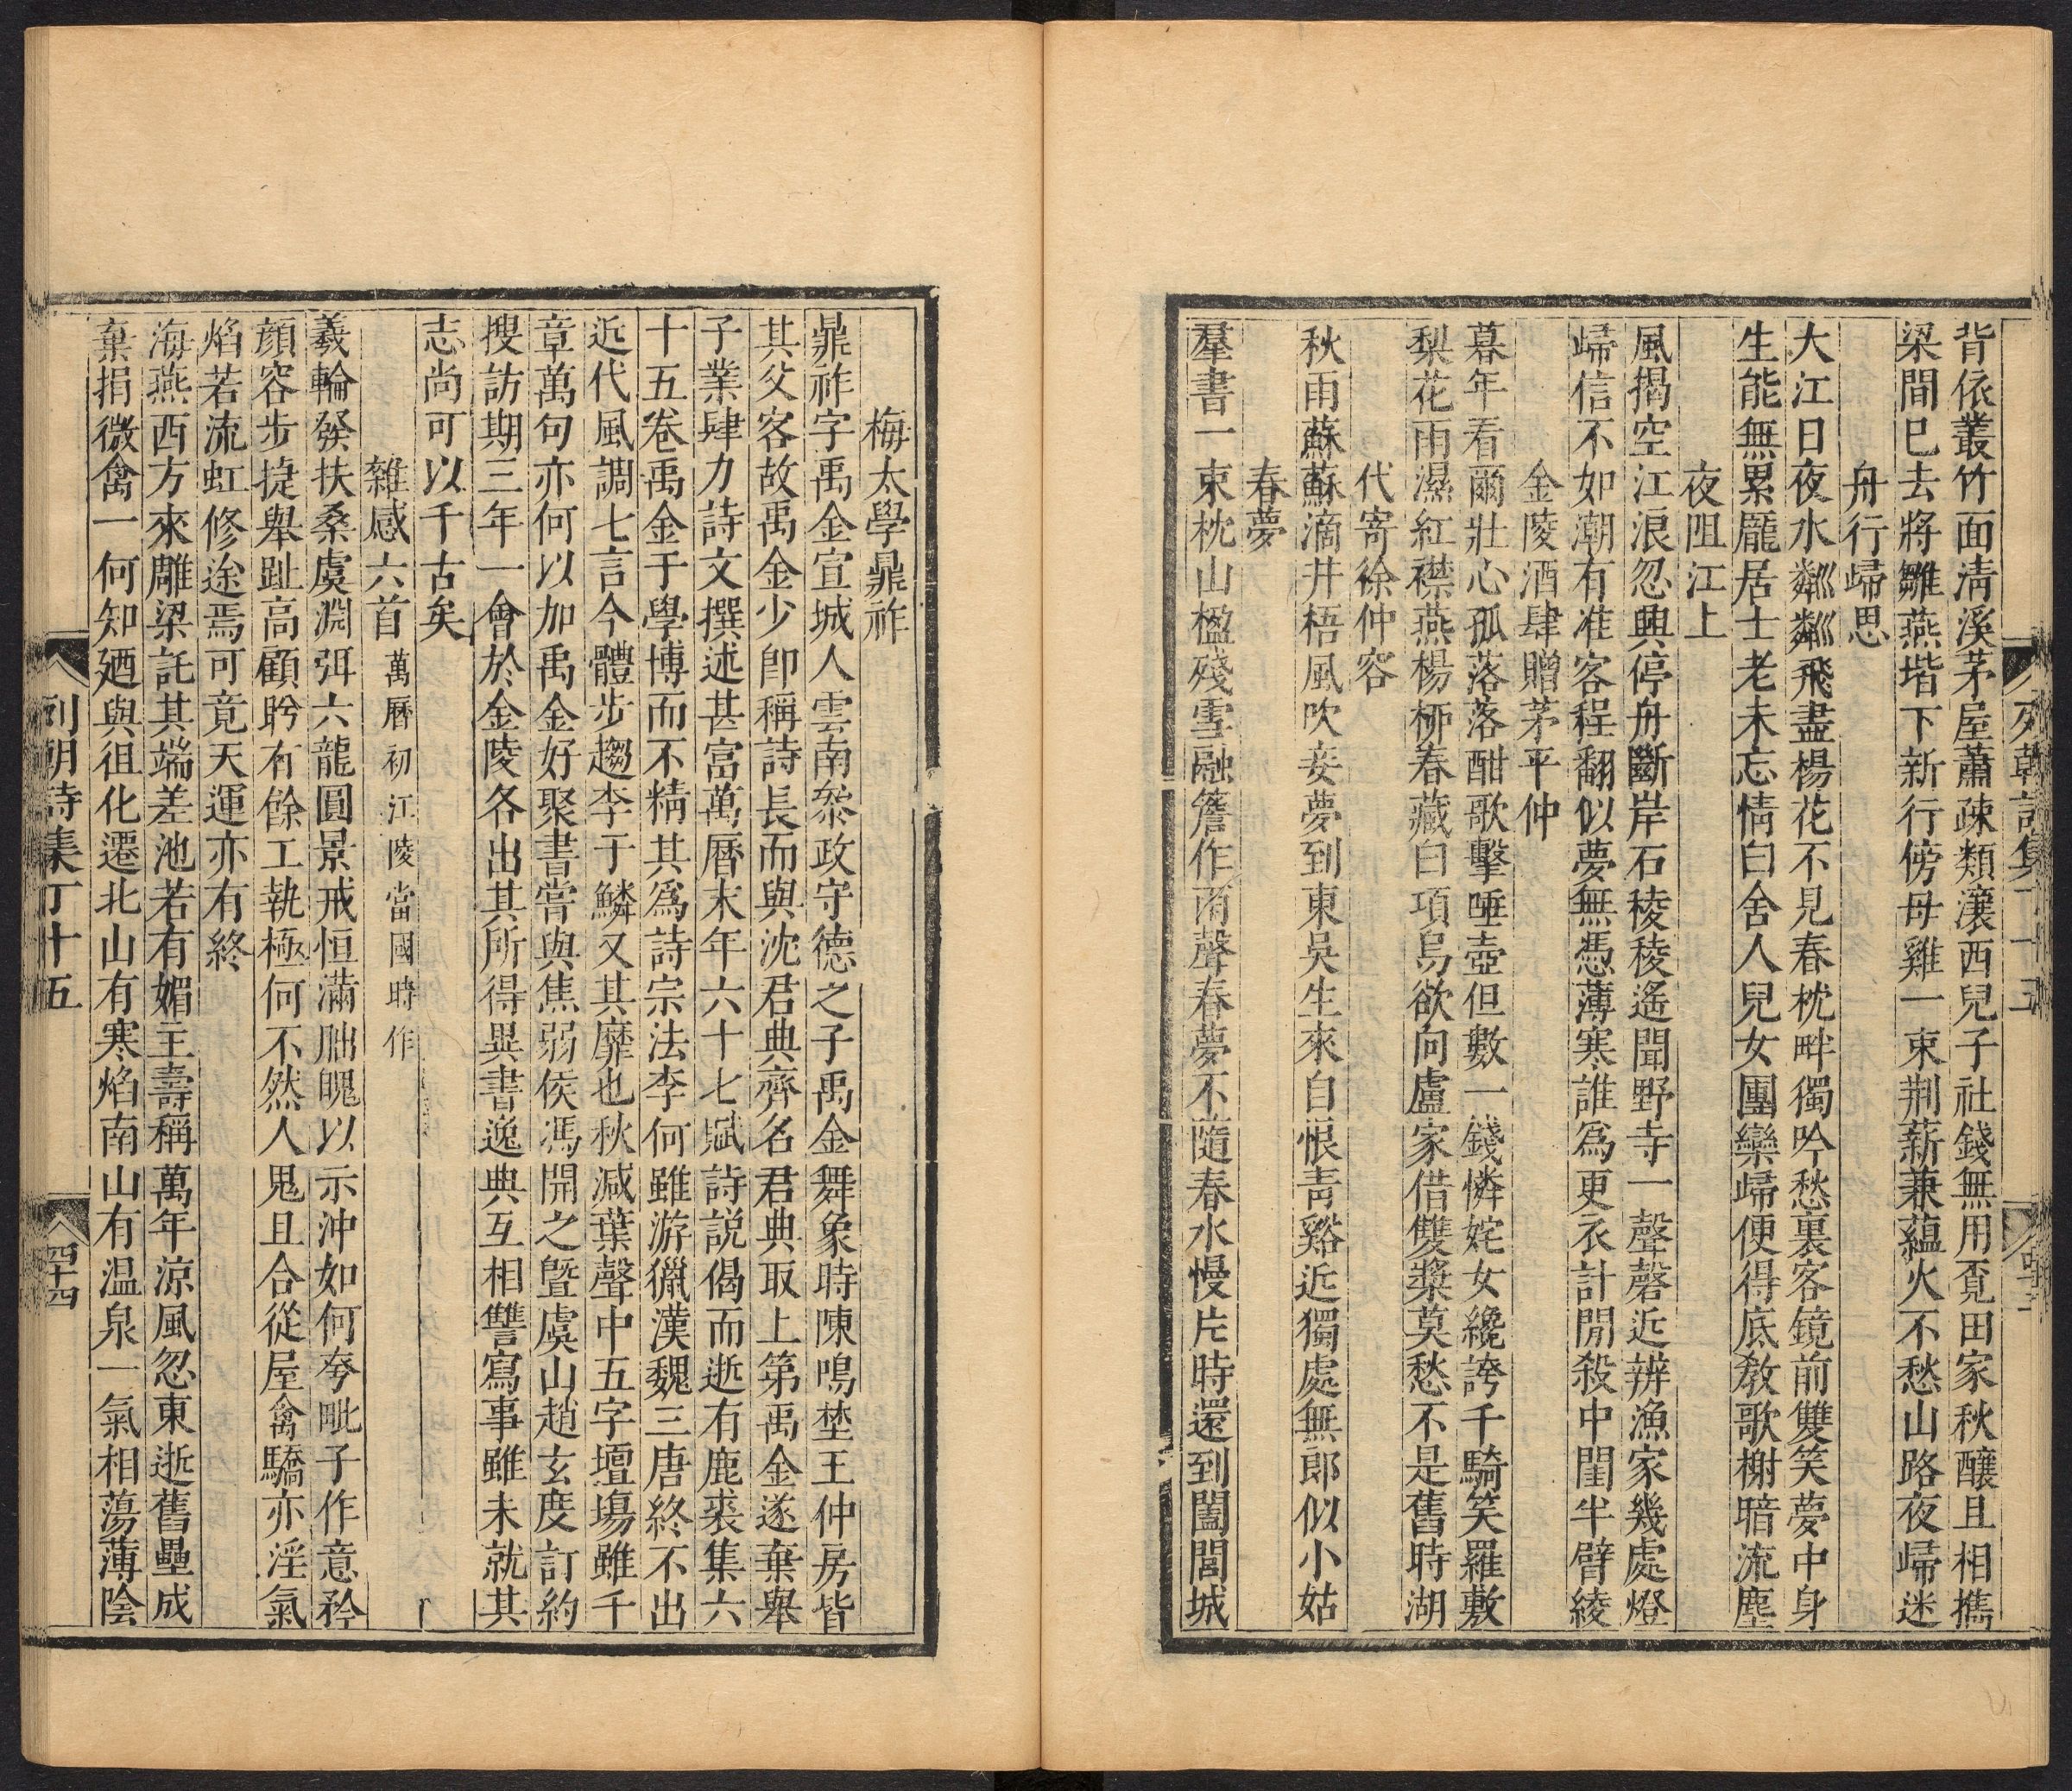 背依叢竹面淸溪茅屋蕭疎類瀼西兒子社錢無用覔田家秋釀且相攜
梁間巳去將雛燕堦下新行傍母雞一束荆薪兼蘊火不愁山路夜歸迷
舟行歸思
大江日夜水粼粼飛盡楊花不見春枕畔獨吟愁裏客鏡前雙笑夢中身
生能無累龐居士老未忘情白舍人兒女團欒歸便得底敎歌榭暗流塵
夜阻江上
風揭空江浪忽興停舟斷岸石稜稜遙聞野寺一聲磬近辨漁家幾處燈
歸信不如潮有准客程翻似夢無憑薄寒誰爲更衣計閒殺中閨半臂綾
金陵酒肆贈茅平仲
暮年看爾壯心孤落落酣歌擊唾壺但數一錢憐姹女纔誇千騎笑羅敷
梨花雨濕紅襟燕楊栁春藏白項烏欲向盧家借雙槳莫愁不是舊時湖
代寄徐仲容
秋雨蘇蘇滴井梧風吹妾夢到東吳生來自恨靑谿近獨處無郎似小姑
春夢
羣書一束枕山楹殘雪融簷作雨聲春夢不隨春水慢片時還到闔閭城
梅太學鼎祚
鼎祚字禹金宣城人雲南叅政守德之子禹金舞象時陳鳴埜王仲房皆
其父客故禹金少卽稱詩長而與沈君典齊名君典取上第禹金遂棄舉
子業肆力詩文撰述甚富萬曆末年六十七賦詩說偈而逝有鹿裘集六
十五卷禹金于學博而不精其爲詩宗法李何雖游獵漢魏三唐終不出
近代風調七言今體步趨李于鱗又其靡也秋減葉聲中五字壇塲雖千
章萬句亦何以加禹金好聚書嘗與焦弱侯馮開之曁虞山趙玄度訂約
搜訪期三年一會於金陵各出其所得異書逸典互相讐寫事雖未就其
志尚可以千古矣
雜感六首 萬曆初江陵當國時作
羲輪發扶桑虞淵弭六龍圓景戒恒滿朏魄以示沖如何夸毗子作意矜
顏容步捷舉趾高顧盻有餘工執極何不然人鬼且合從屋禽驕亦淫氣
焰若流虹修途焉可竟天運亦有終
海燕西方來雕梁託其端差池若有媚主壽稱萬年涼風忽東逝舊壘成
棄捐微禽一何知廼與徂化遷北山有寒焰南山有温泉一氣相蕩薄陰
列朝詩集丁十五
四十四